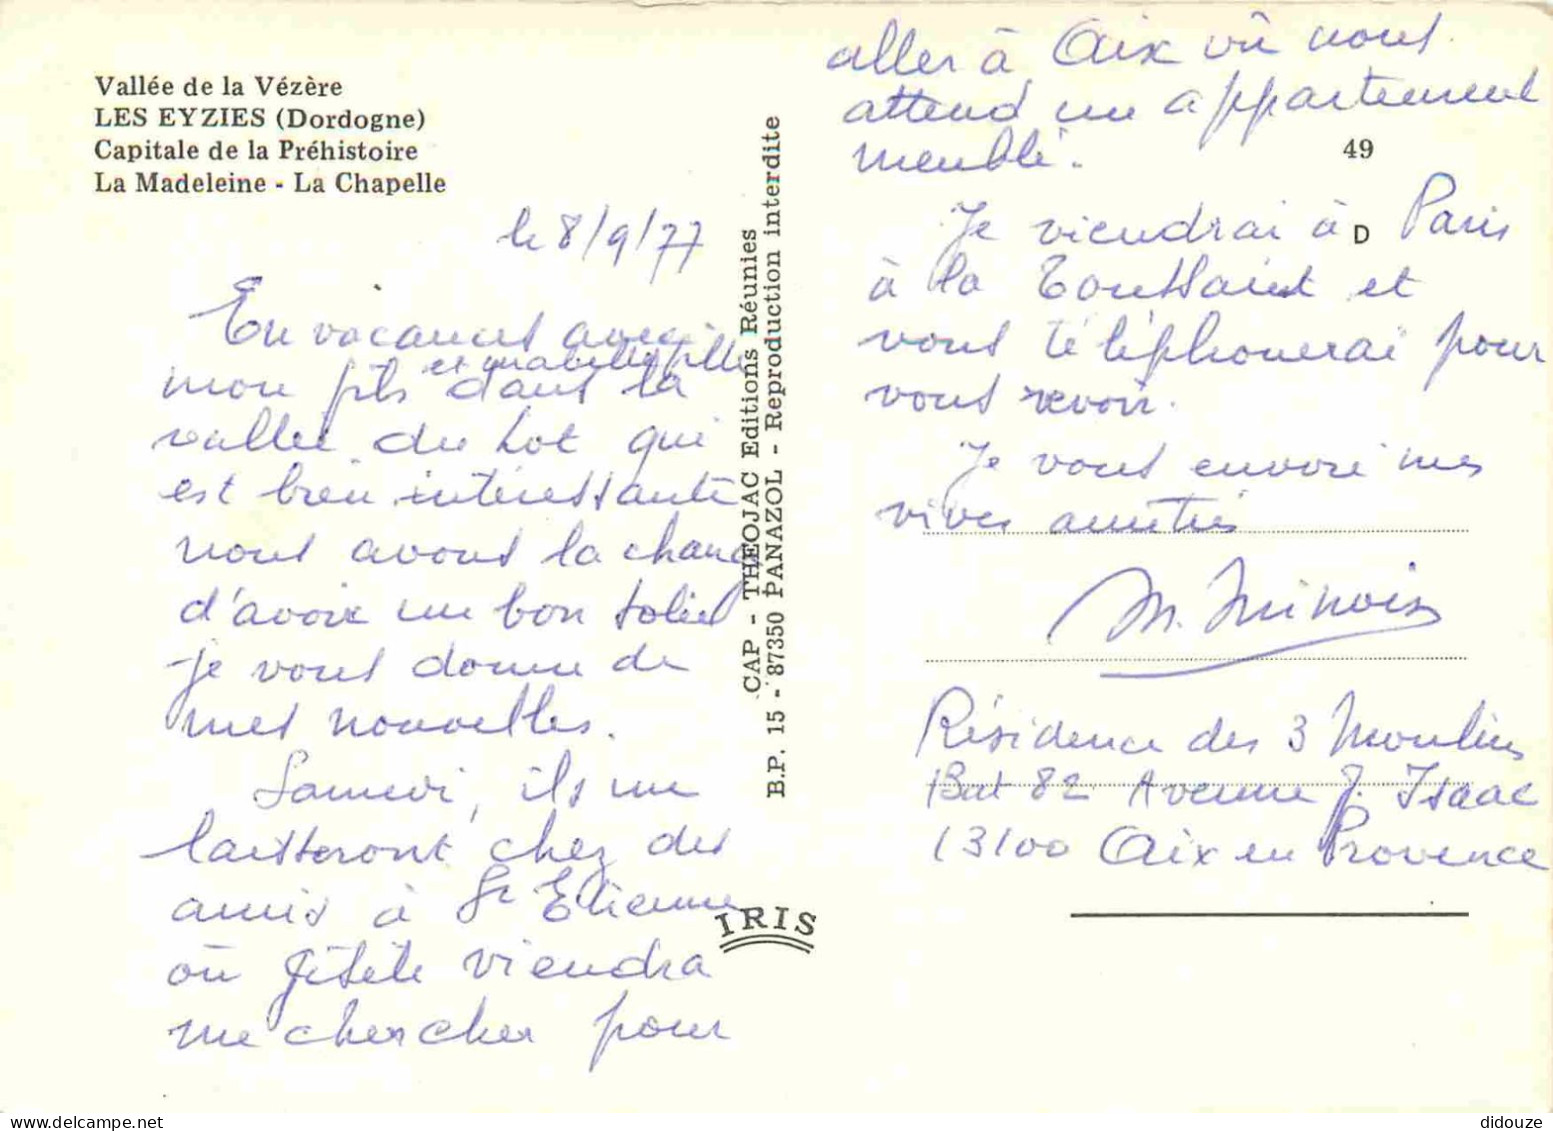 Vallée de la Vézère
LES EYZIES (Dordogne)
Capitale de la Préhistoire
La Madeleine - La Chapelle
le 8/9/77
En vacances avec
et ma belle fille
mon fils dans la
vallée du Lot qui
est bien intéressante
nous avons la chance
d'avoir un bon soleil
je vous donne de
mes nouvelles.
Samedi, ils me
laisseront chez des
amis à St Etienne
où Gisèle viendra
me chercher pour
CAP - THEOJAC Editions Réunies
B.P. 15 - 87350 PANAZOL - Reproduction interdite
IRIS
aller à Aix où nous
attend un appartement
meublé.
49
Je viendrai à Paris
D
à la Toussaint et
vous téléphonerai pour
vous revoir.
Je vous envoie mes
vives amitiés
M.
Résidence des 3 Moulins
Bat 82 Avenue J. Isaac
13100 Aix en Provence
didouze